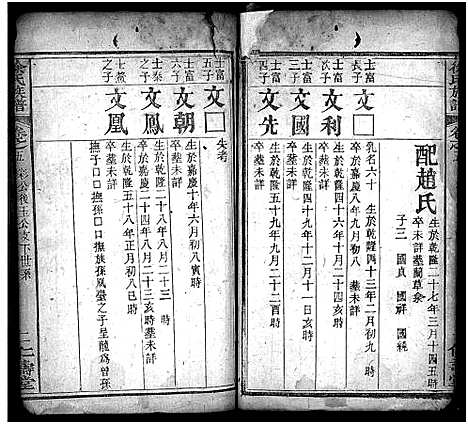 配趙氏
生於乾隆二十七年三月十四丑時
卒未詳葬蘭草
子三 國貞 國祥 國統
士富長子
文□
乳名六十 生於乾隆四十三年二月初九 時
卒於嘉慶八年九月初八 葬未詳
士富次子
文利
生於乾隆四十六年八月二十四亥時
卒葬未詳
士富三子
文友
生於乾隆四十九年十月十一日亥時
卒葬未詳
士富四子
文先
生於乾隆五十九年九月二十二酉時
卒葬未詳
士富五子
文□
失考
士
之子
文朝
生於嘉慶十年六月初八寅時
卒葬未詳
士泰之子
文鳳
生於嘉慶二十四年八月二十三 時
卒於嘉慶二十四年八月二十三亥時葬未詳
士
之子
文凰
生於乾隆五十八年正月初八巳時
卒葬未詳
撫子口口口撫孫口口撫族孫鳳
之子呈龍為曾孫
徐氏族譜
卷之五